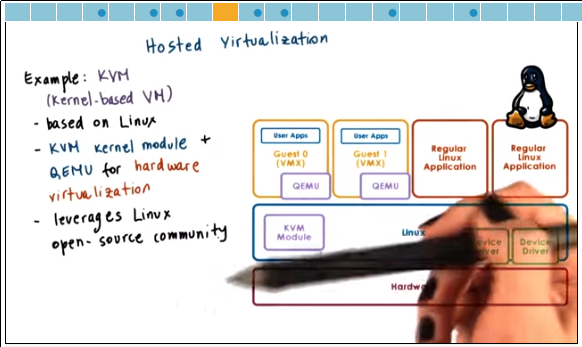 Hosted Virtualization
Example: KVM
(Kernel-based VM)
- based on Linux
- KVM kernel module +
QEMU for hardware
virtualization
- leverages Linux
open-source community
User Apps
Guest 0
(VMX)
QEMU
User Apps
Guest 1
(VMX)
QEMU
Regular
Linux
Application
Regular
Linux
Application
KVM
Module
Linux
Device
Driver